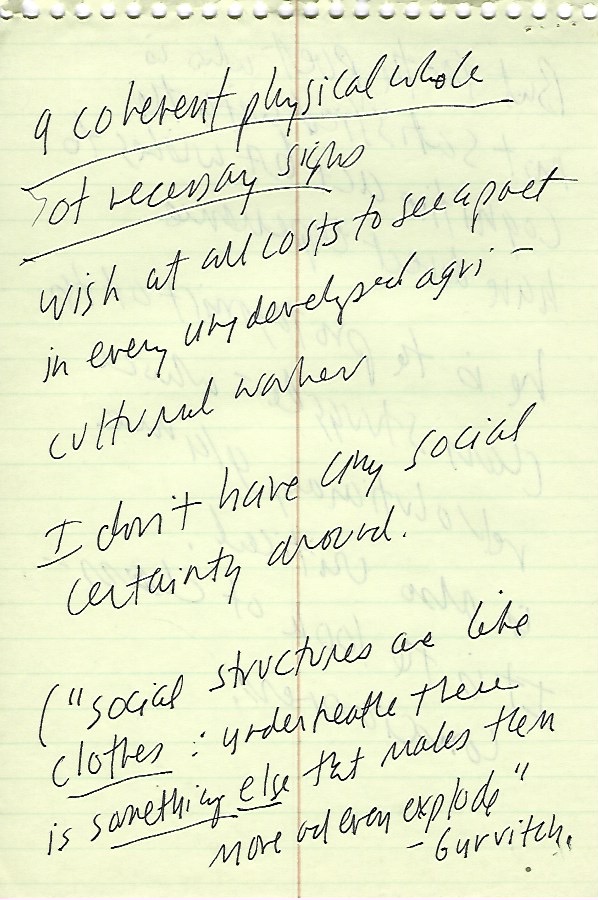 a coherent physical whole
of necessary signs
wish at all costs to see a poet
in every undeveloped agri-
cultural worker
I don't have any social
certainty around.
("social structures are like
clothes : underneath there
is something else that makes them
move and even explode"
- Gurvitch.